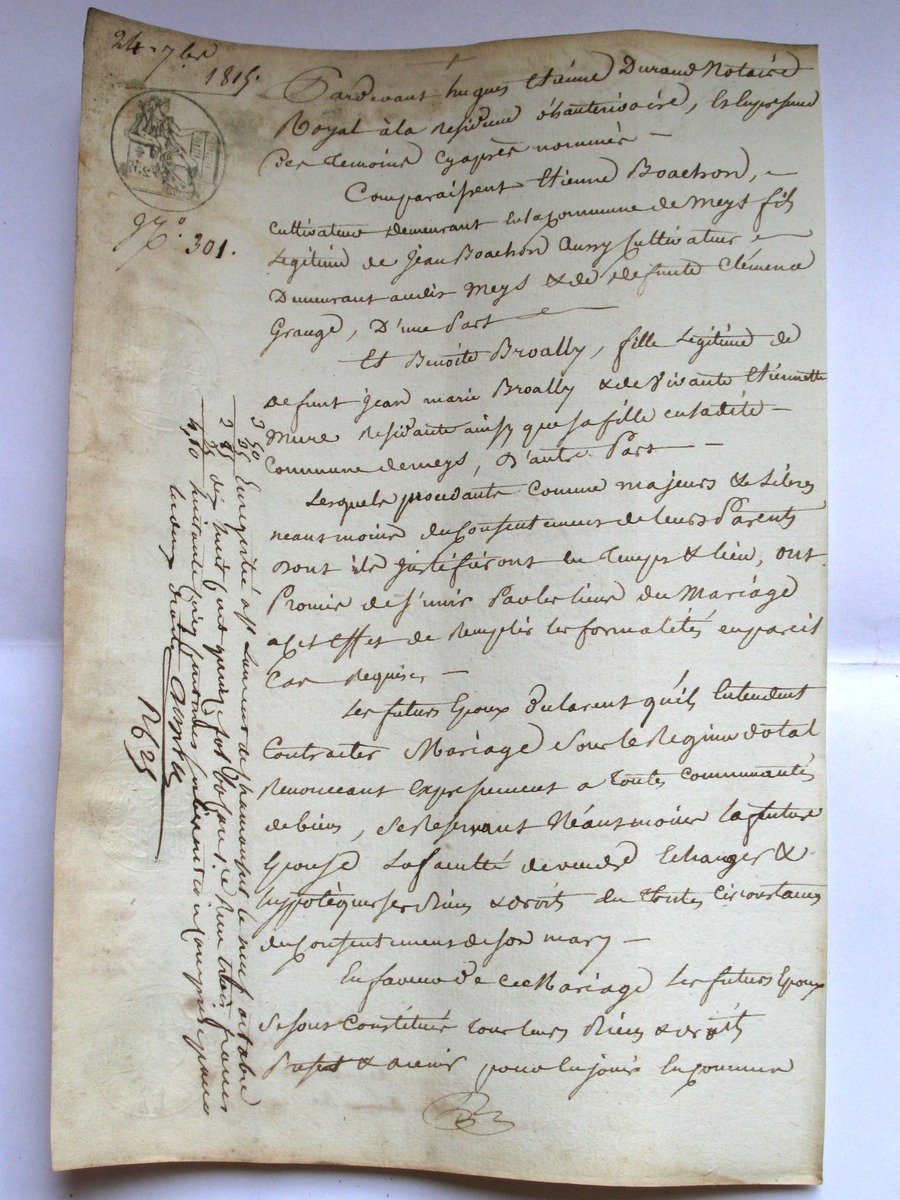 24 7bre
1815.
N.o 301.
Pardevant hugues Etienne Durand Notaire
Royal à la Residence d'hauterivoire, Et En presence
des temoins Cyaprès nommés —
Comparaissent Etienne Boachon,
Cultivateur Demeurant En la Commune de Meys fils
Legitime de Jean Boachon Aussy Cultivateur
Demeurant audit Meys & de defunte Clémence
Grange, D'une Part
Et Benoite Broally, fille Legitime de
defunt Jean marie Broally & de Vivante Etiennette
Mure Residante ainsy que sa fille en ladite
Commune de meys, D'autre Part —
Lesquels procedants Comme majeurs & Libres
neanmoins du Consentement de leurs Parents
dont ils justifieront en Temps & lieu, ont
Promis de s'unir Par les liens du Mariage
a Cet Effet de Remplir les formalités en pareil
Cas Requises —
Les futurs Epoux Déclarent qu'ils Entendent
Contracter Mariage Sous le Regime dotal
Renonceant Expressement a Toutes Communautés
de biens, se Reservant Néansmoins la future
Epouse La faculté de vendre Echanger &
hyppotèquer ses Biens & droits En Toutes Circonstances
du Consentement de son mary —
En faveur de Ce Mariage Les futurs Epoux
Se sont Constitués tous leurs Biens & droits
Present & avenir pour En jouir En Commun
3 50
2 35
4,10
Enregistré à St Laurent de chamousset le neuf octobre
dix huit cent quinze fol. Reçu trois francs
cinquante
Centimes dixième Compris
R625